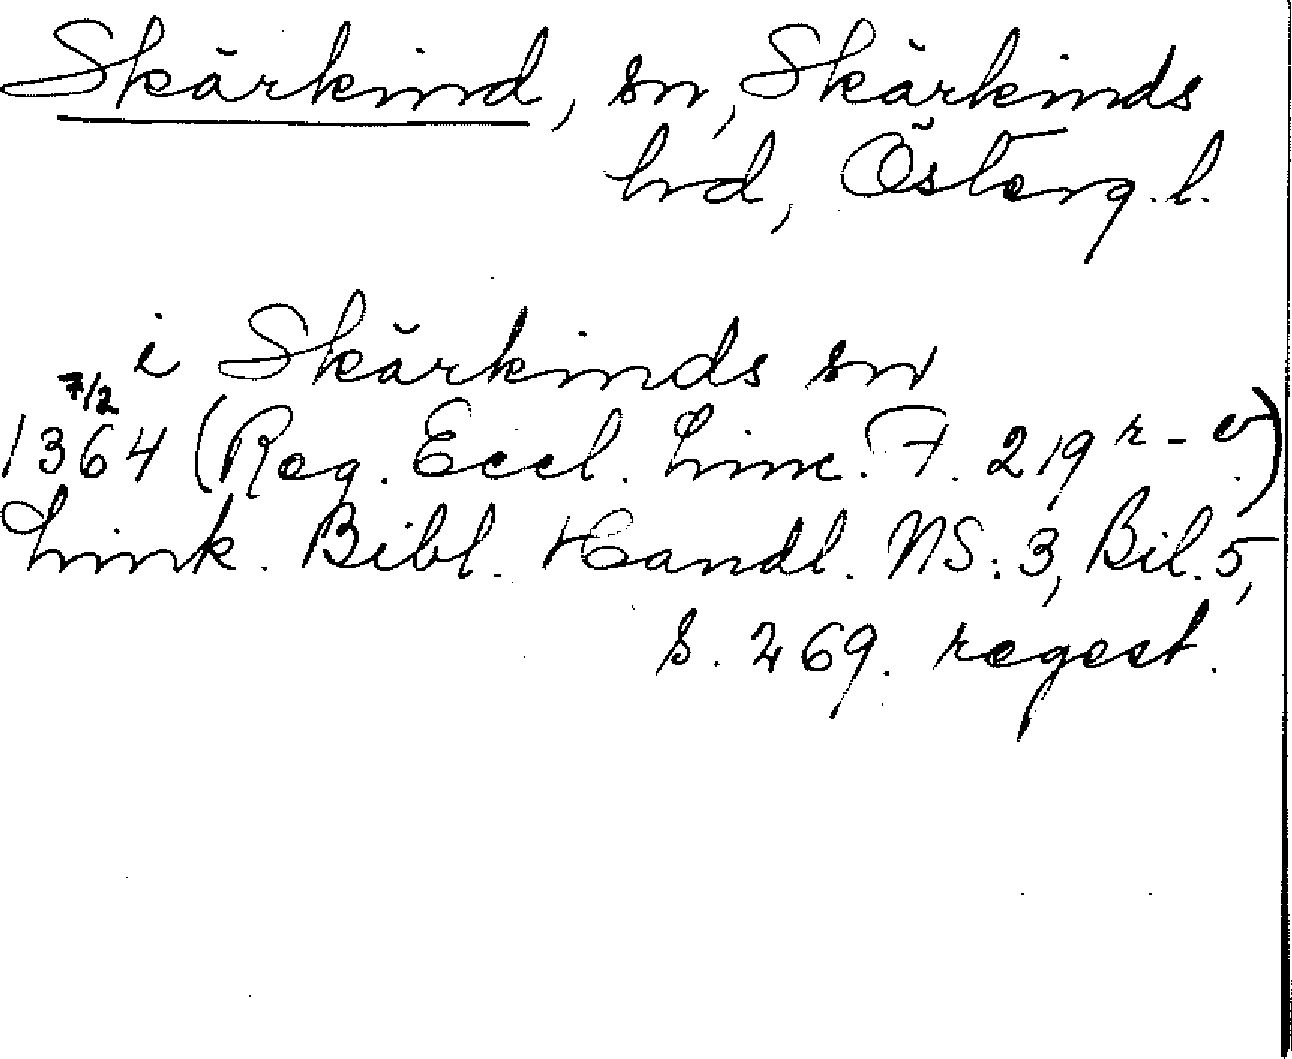 Skärkind, sn, Skärkinds
hrd, Österg.l.
i Skärkinds sn
7/2
1364 (Reg. Eccl. Linc. F. 219 r-v.)
Link. Bibl. Handl. NS: 3, Bil. 5,
s. 269. regest.